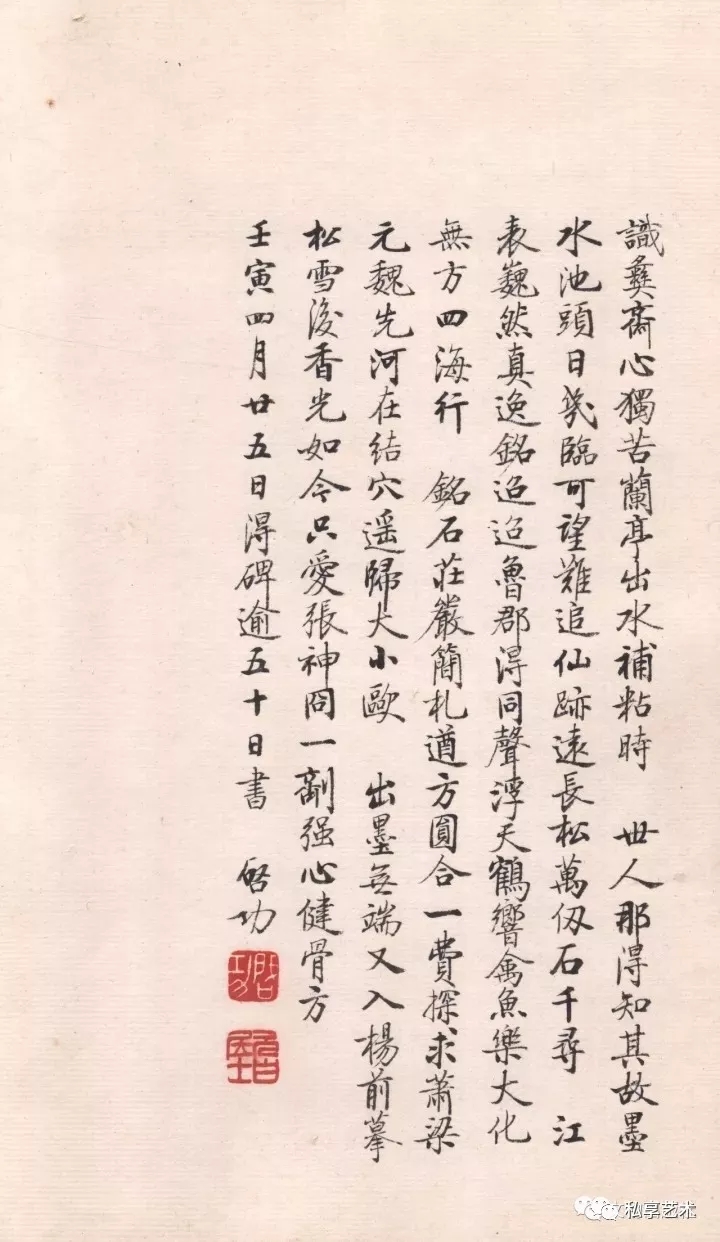 識彝齋心獨苦蘭亭出水補粘時　世人那得知其故墨
水池頭日幾臨可望難追仙跡遠長松萬仞石千尋　江
表巍然真逸銘迢迢魯郡得同聲浮天鶴響禽魚樂大化
無方四海行　銘石莊嚴簡札遒方圓合一費探求蕭梁
元魏先河在結穴遥歸大小歐　出墨無端又入楊前摹
松雪後香光如今只愛張神冏一劑强心健骨方
壬寅四月廿五日得碑逾五十日書　啓功
啓功
私享艺术